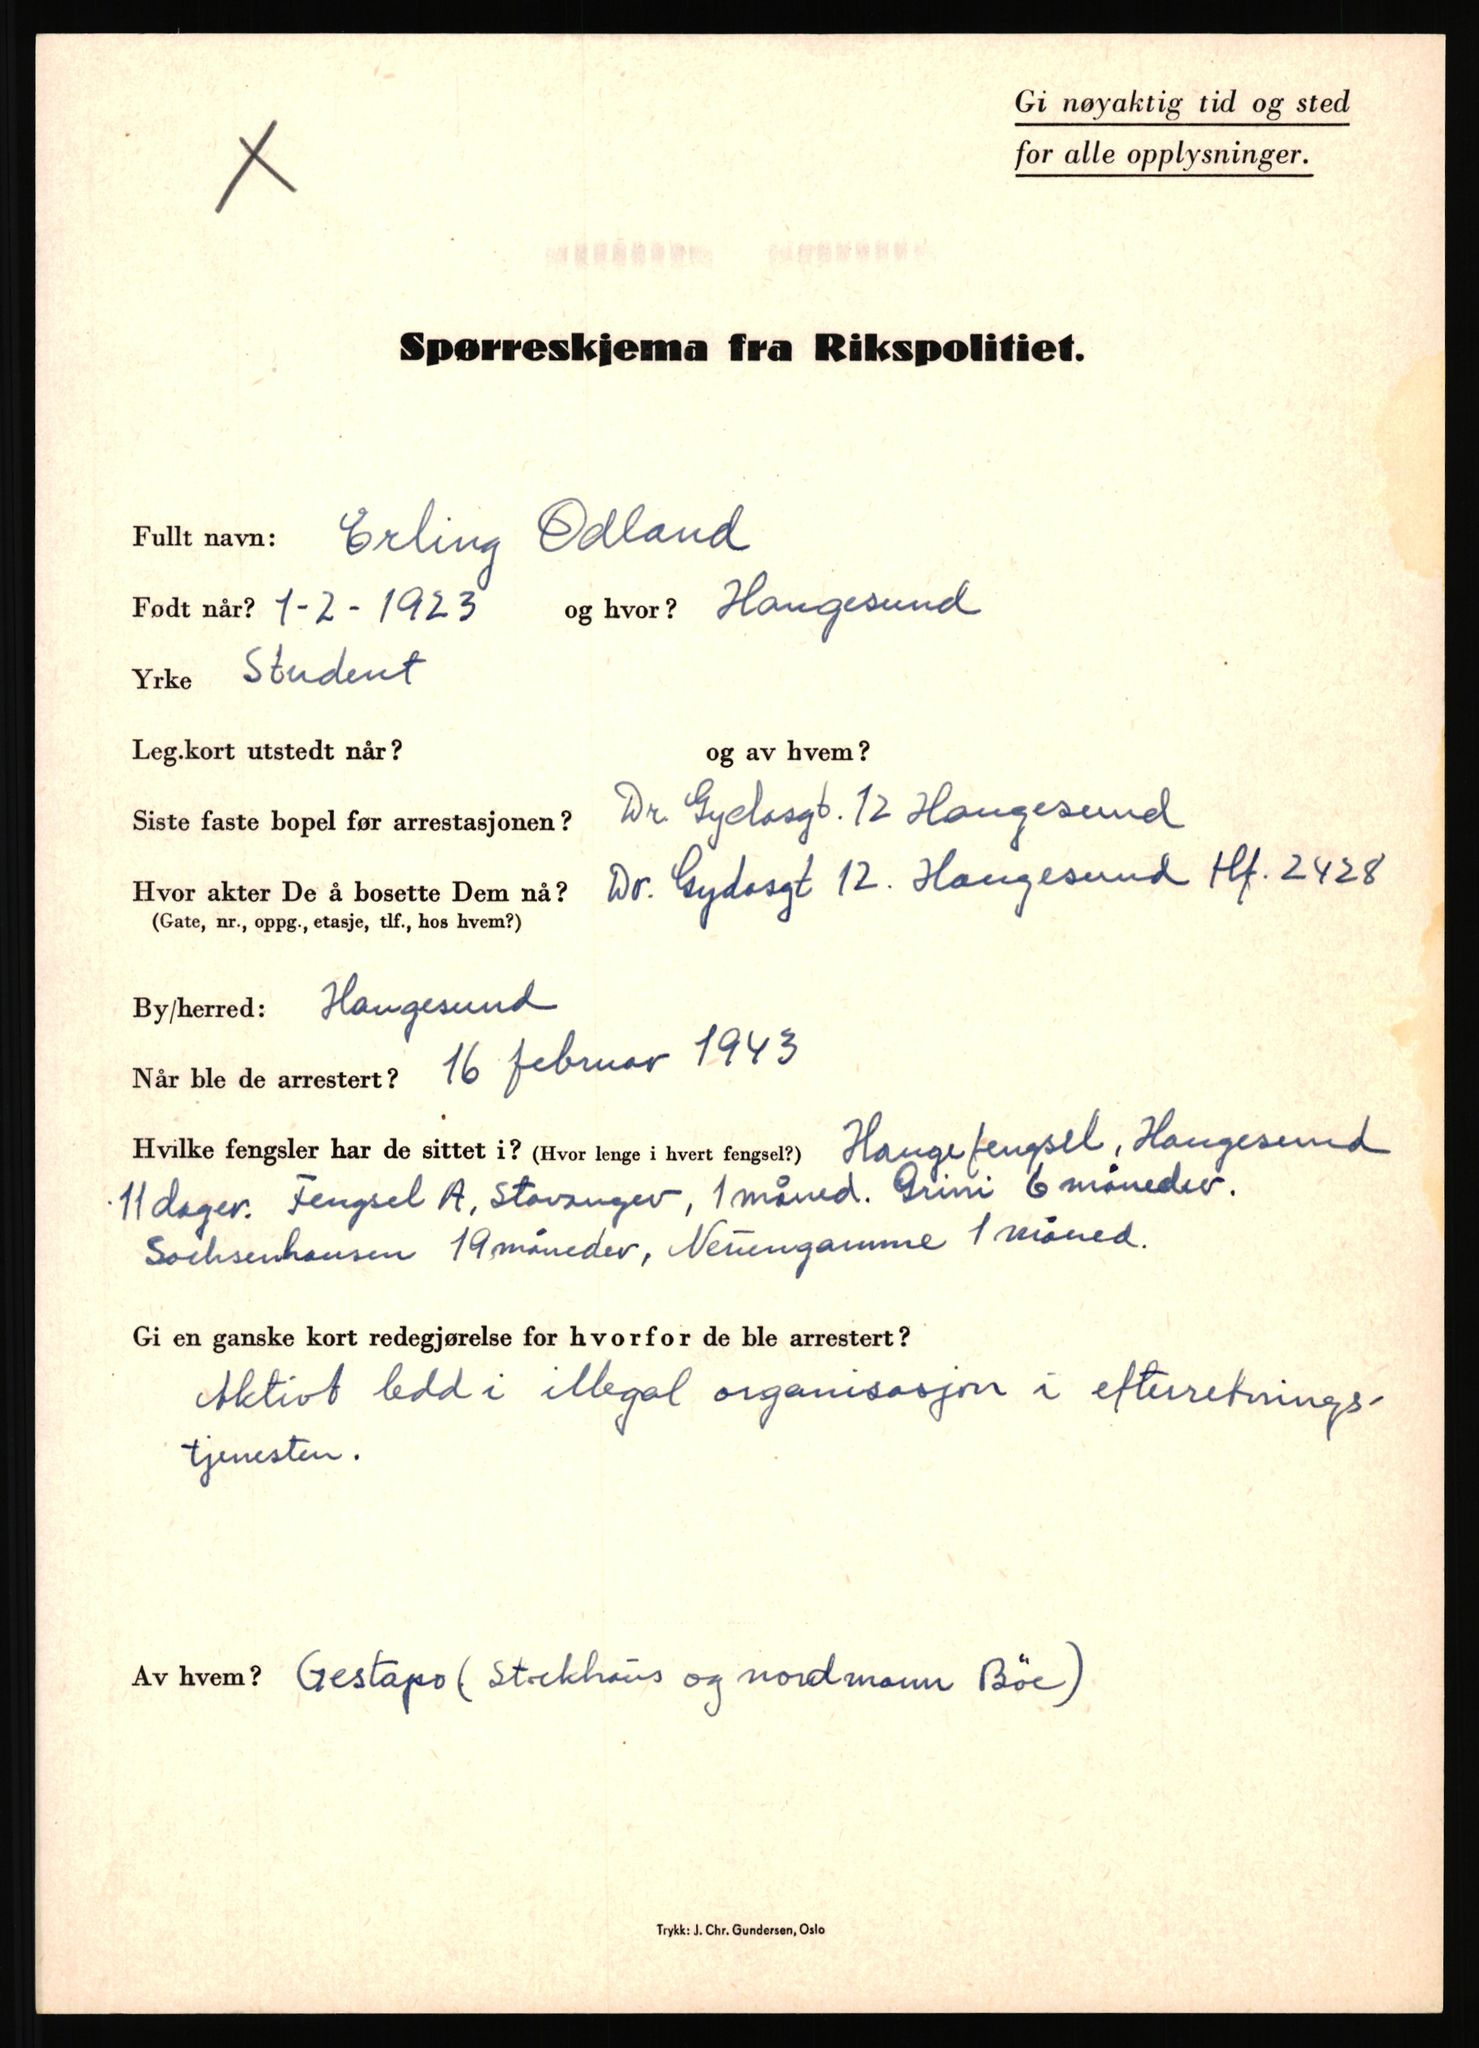 Gi nøyaktig tid og sted
for alle opplysninger.
Spørreskjema fra Rikspolitiet.
Fullt navn: Erling Odland
Født når? 1-2-1923 og hvor? Haugesund
Yrke Student
Leg.kort utstedt når? og av hvem?
Siste faste bopel før arrestasjonen? Dr. Gydasgt. 12 Haugesund
Hvor akter De å bosette Dem nå? Dr. Gydasgt 12. Haugesund tlf. 2428
(Gate, nr., oppg., etasje, tlf., hos hvem?)
By/herred: Haugesund
Når ble de arrestert? 16 februar 1943
Hvilke fengsler har de sittet i? (Hvor lenge i hvert fengsel?) Haugefengsel, Haugesund
11 dager. Fengsel A, Stavanger, 1 måned. Grini 6 måneder.
Sachsenhausen 19 måneder, Neuengamme 1 måned.
Gi en ganske kort redegjørelse for hvorfor de ble arrestert?
Aktivt ledd i illegal organisasjon i efterretnings-
tjenesten.
Av hvem? Gestapo ( og nordmann Böe)
Trykk: J. Chr. Gundersen, Oslo